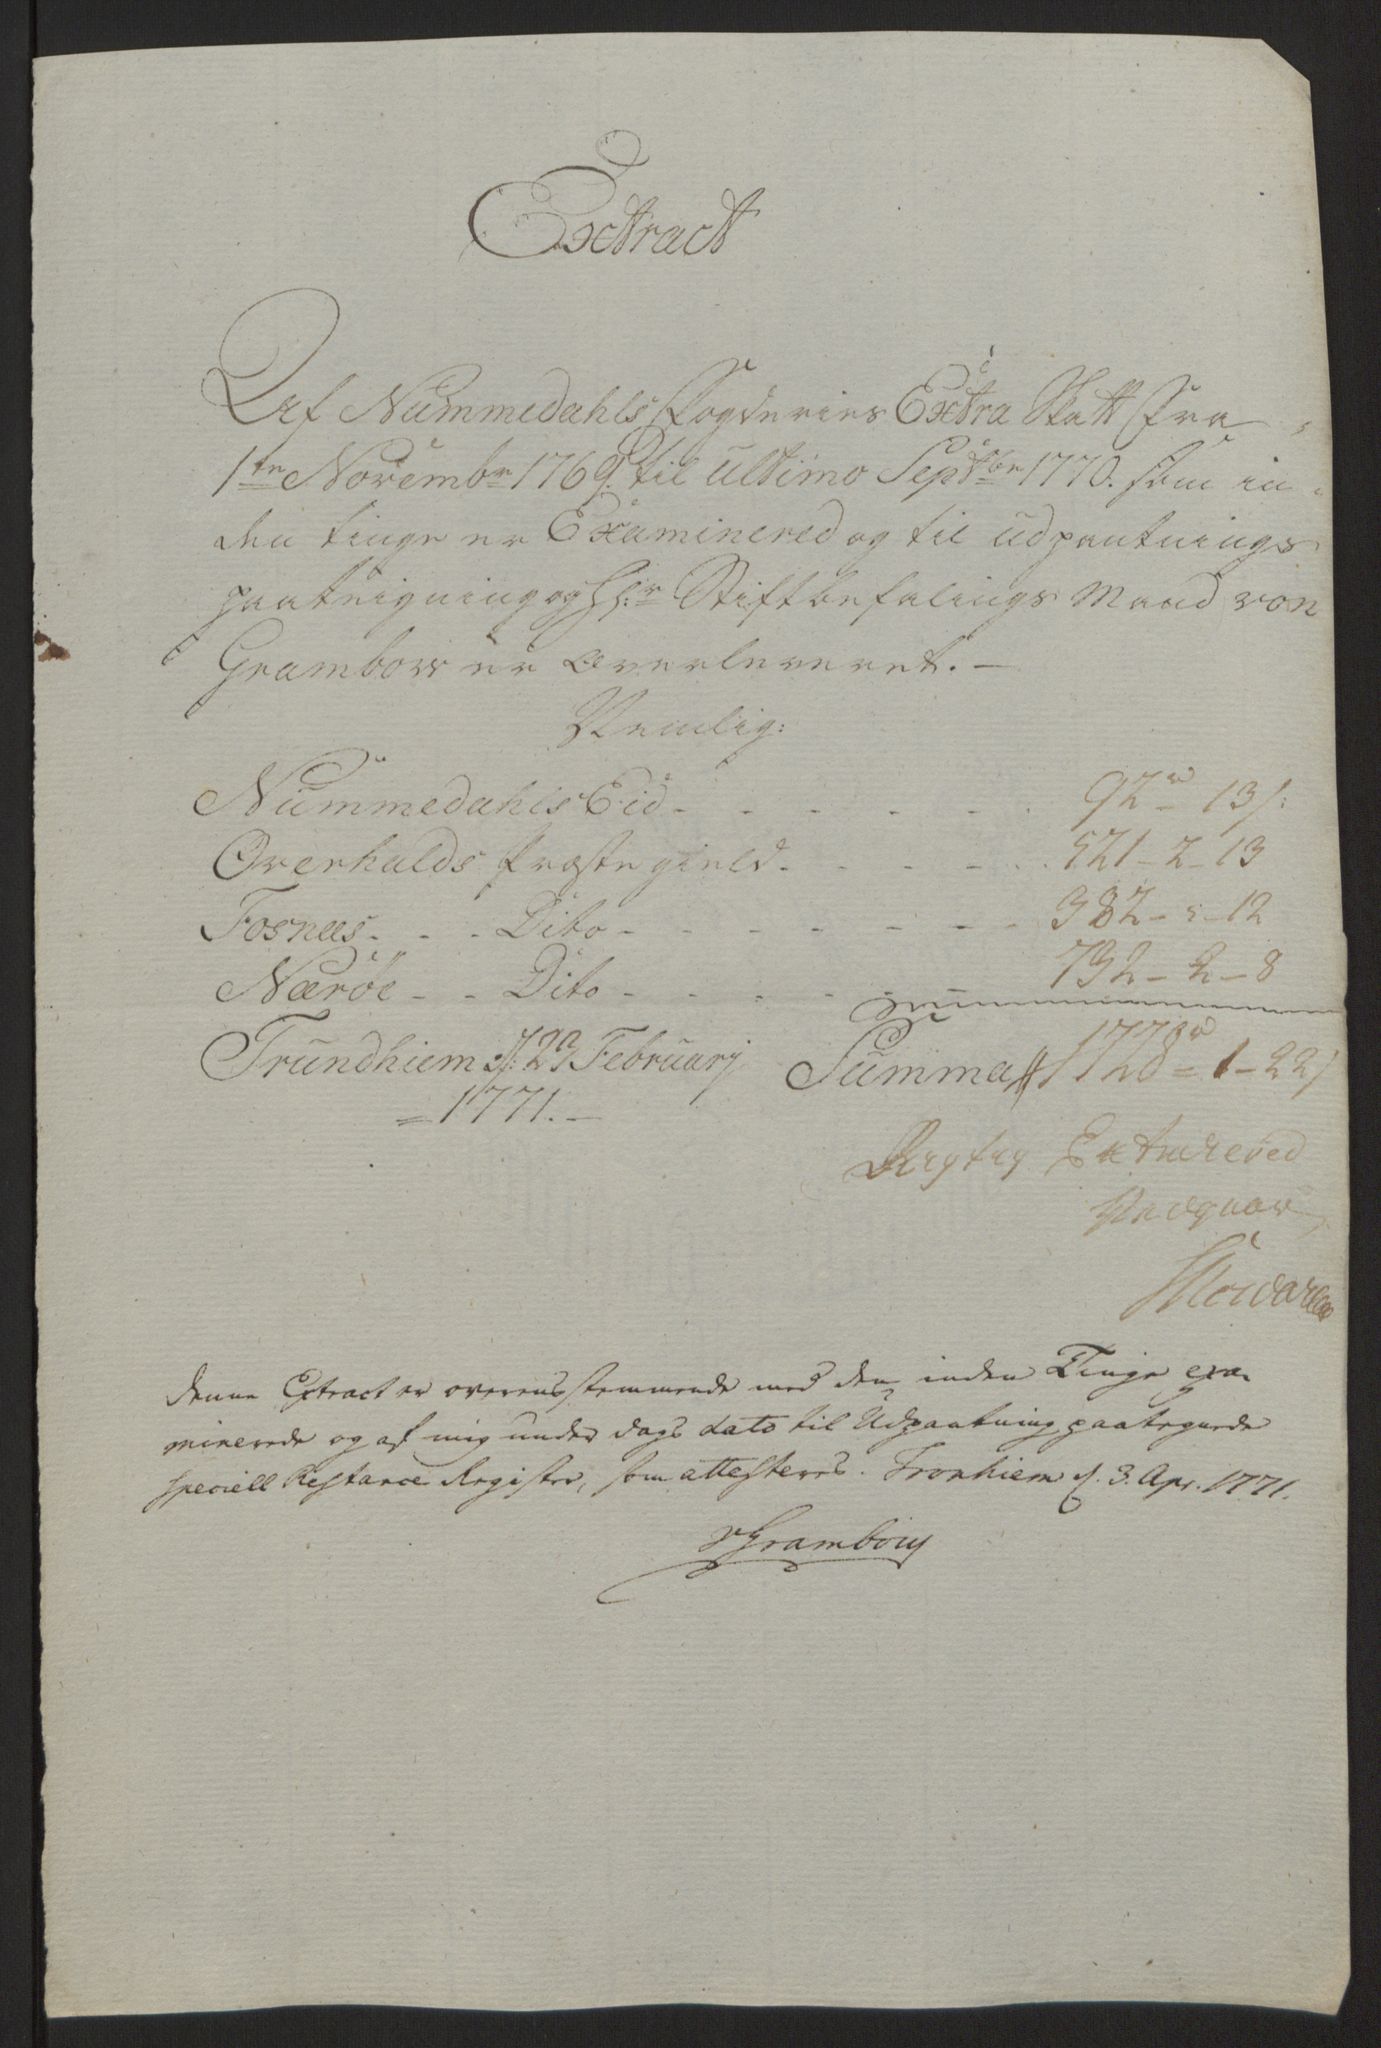 Extract
Af Nummedahls Fogderies Extra Skatt fra
1te Novembr 1769. til ultimo Septbr 1770. som in-
den tinge er Examinered og til udpantnings
paateigning og Hr. Stiftbefalings Mand von
Grambow er overleveret. –
Nemlig:
Nummedahls Eid - - - - - - 92r – 13 s:
Overhalds Præstegield - - - - - 521 – 2 – 13
Fosnees - - - Dito - - - - - - - - 382 – 5 – 12
Nærøe - - Dito - - - - - 732 – 2 – 8
Trundhiem d: 23 Februarij Summa 1728r – 1 – 22 s
= 1771. –
Rigtig Extrahered

denne Extract er overensstemmende med den inden Tinge exa-
minerede og af mig under dags dato til Udpantning paategnede
speciell Restance Register, som attesteres. Tronhiem d. 3. Apr. 1771.
vGrambow